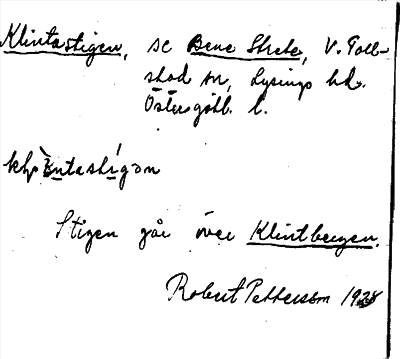 Klintastigen, se Bene Strete, V. Toll-
stad sn, Lysings hd.
Östergötl. l.
Stigen går över Klintbergen.
Robert Pettersson 1928